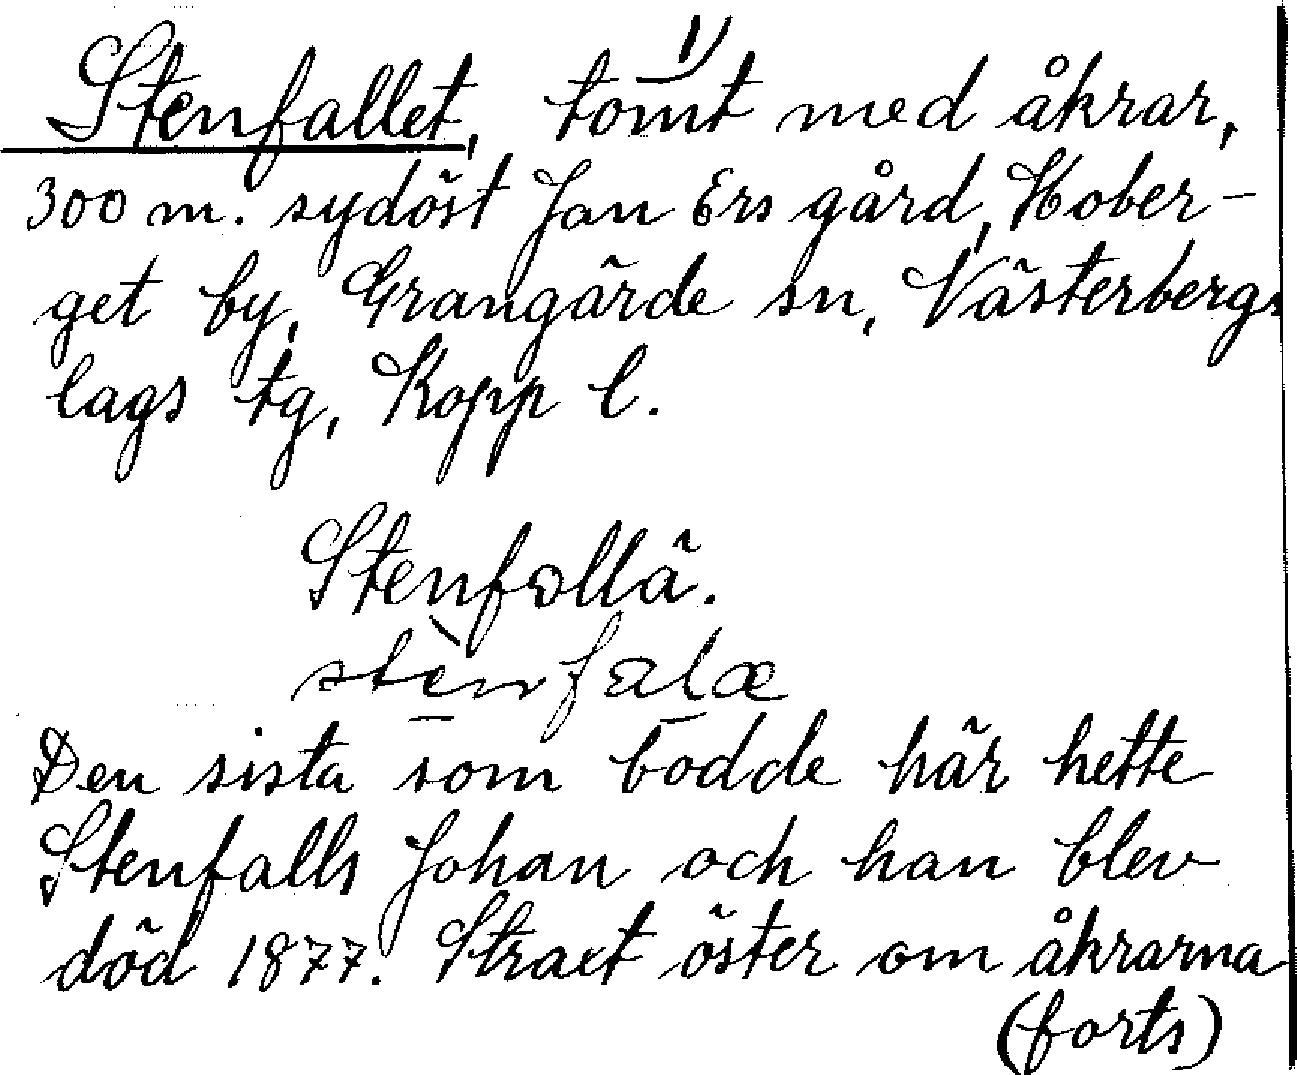 Stenfallet, tomt 1) med åkrar,
300 m. sydöst Jan Ers gård, Hober-
get by, Grangärde sn, Västerbergs
lags tg, Kopp l.
Stenfallä.
stènfalæ
Den sista som bodde här hette
Stenfalls Johan och han blev
död 1877. Straxt öster om åkrarna
(forts)